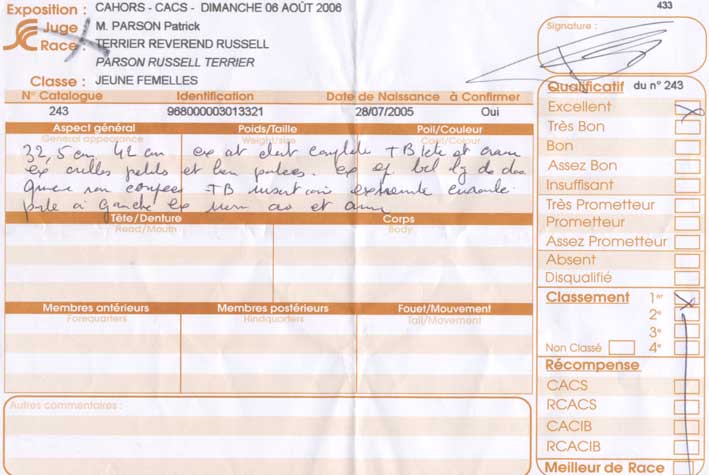 Exposition : CAHORS - CACS - DIMANCHE 06 AOÛT 2006
433
Juge : M. PARSON Patrick
Race : TERRIER REVEREND RUSSELL
PARSON RUSSELL TERRIER
Classe : JEUNE FEMELLES
Signature :
N° Catalogue Identification Date de Naissance à Confirmer
243 968000003013321 28/07/2005 Oui
Aspect général Poids/Taille Poil/Couleur
General appearance Weight/size Coat/Colour
32,5 cm 42 cm ex dent complète TB tête et
ex oreilles petits et bien portées. ex
queue non coupée TB
à gauche ex
Tête/Denture Corps
Head/Mouth Body
Membres antérieurs Membres postérieurs Fouet/Mouvement
Forequarters Hindquarters Tail/Movement
Autres commentaires :
Qualificatif du n° 243
Excellent
Très Bon
Bon
Assez Bon
Insuffisant
Très Prometteur
Prometteur
Assez Prometteur
Absent
Disqualifié
Classement 1er
2e
3e
Non Classé 4e
Récompense
CACS
RCACS
CACIB
RCACIB
Meilleur de Race